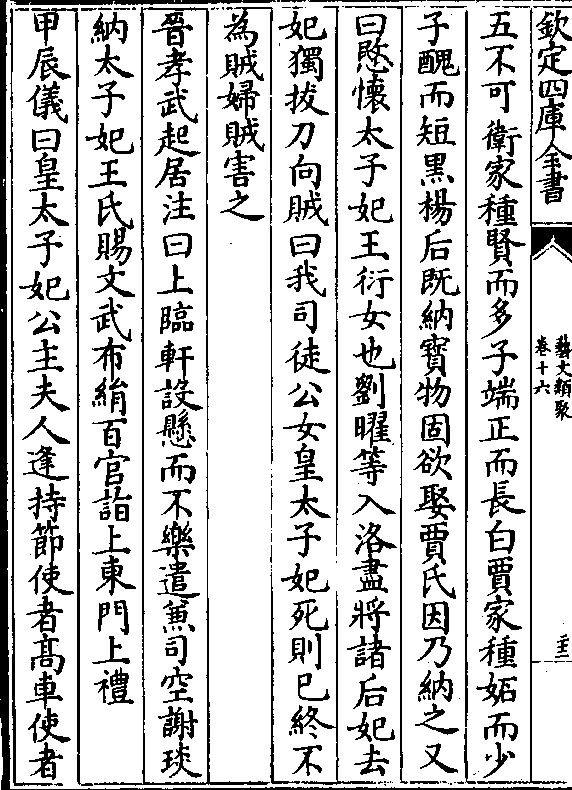 欽定四庫全書
藝文類聚
卷十六
二十三
五不可衛家種賢而多子端正而長白賈家種妬而少
子醜而短黑楊后既納寳物固欲娶賈氏因乃納之又
曰愍懷太子妃王衍女也劉曜等入洛盡將諸后妃去
妃獨拔刀向賊曰我司徒公女皇太子妃死則已終不
為賊婦賊害之
晉孝武起居注曰上臨軒設懸而不樂遣兼司空謝琰
納太子妃王氏賜文武布絹百官詣上東門上禮
甲辰儀曰皇太子妃公主夫人逢持節使者髙車使者